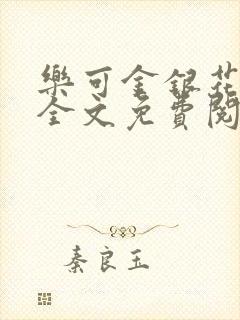 樂可金銀花
全文免費閱
秦良玉